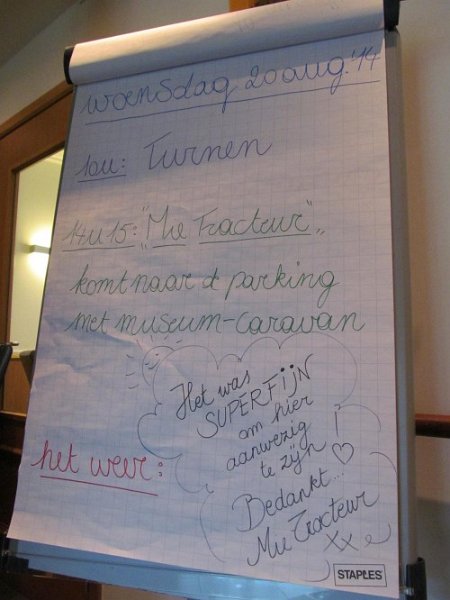 woensdag 20 aug. '14
10u: Turnen
14u15: "Mie Tracteur"
komt naar de parking
met museum-caravan
het weer:
Het was
SUPERFIJN
om hier
aanwezig
te zijn!
Bedankt...
Mie Tracteur
xx
STAPLES